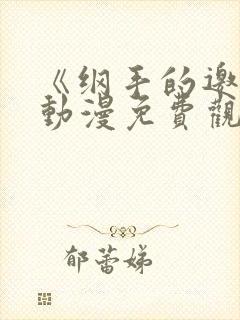 《纲手的邀
動漫免費觀
郁蕾娣